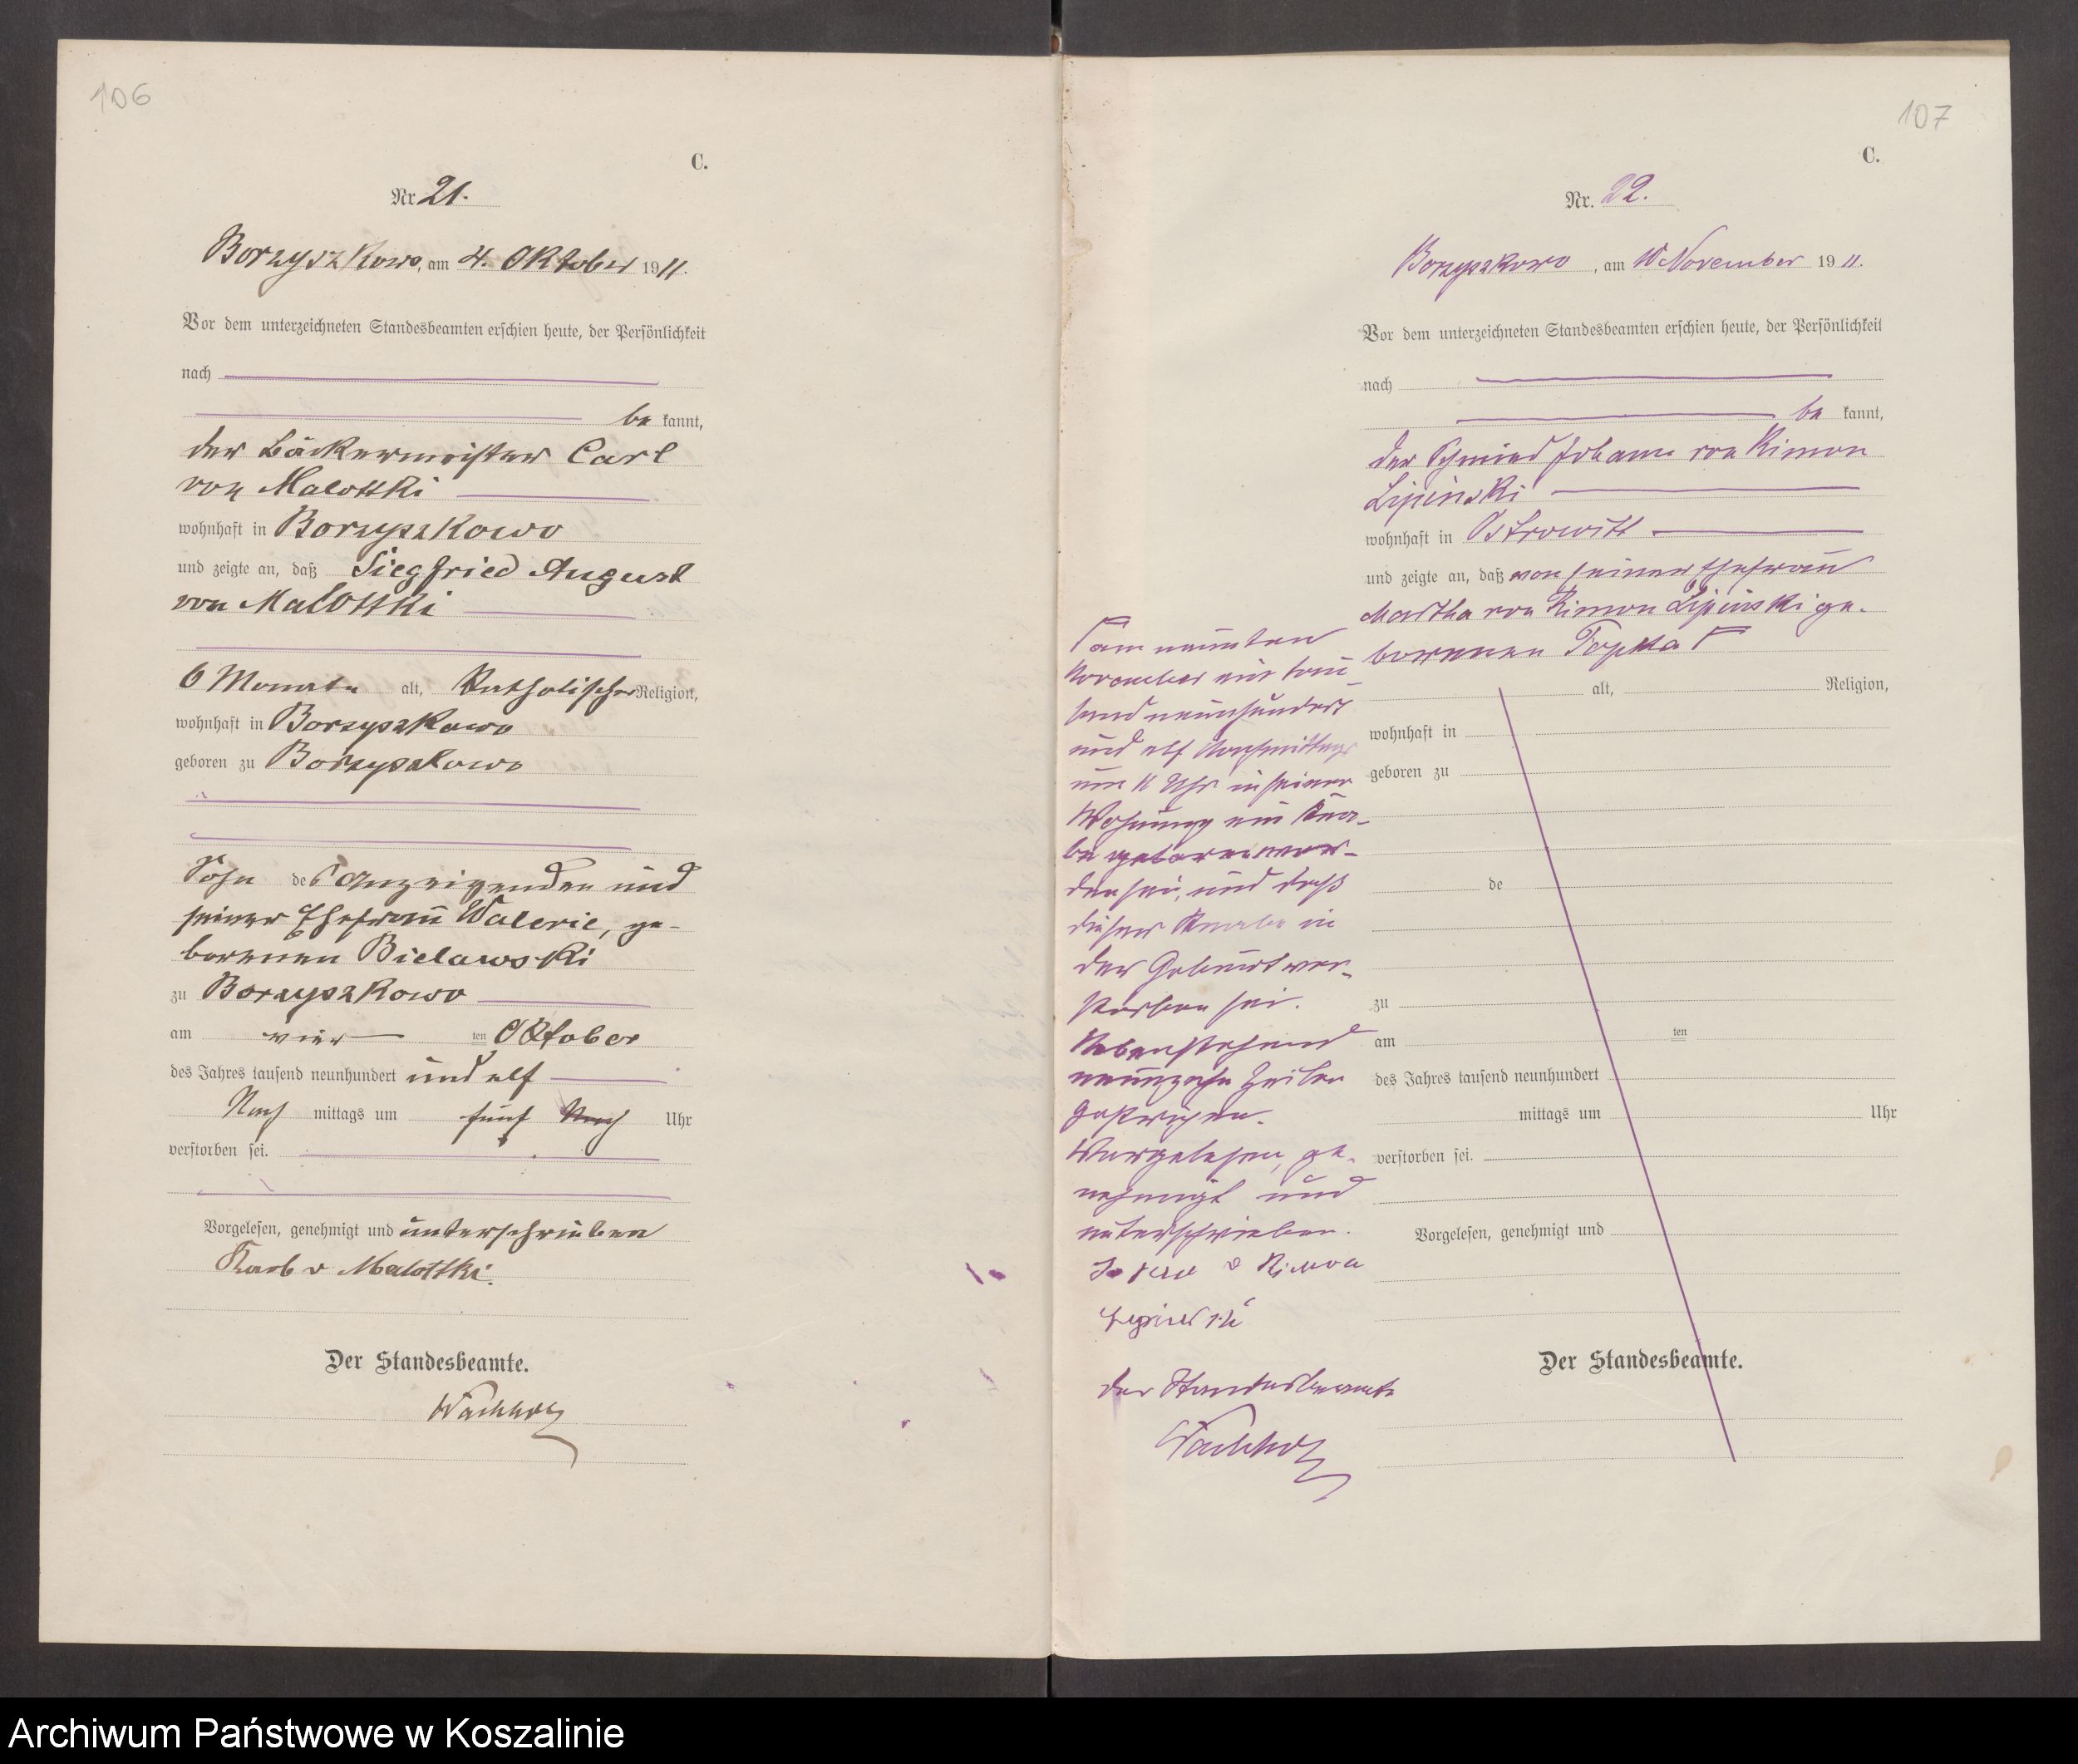 106
C.
Nr 21.
Borzyszkowo, am 4. Oktober 1911.
Vor dem unterzeichneten Standesbeamten erschien heute, der Persönlichkeit
nach
be kannt,
der Bäckermeister Carl
von Malottki
wohnhaft in Borzyszkowo
und zeigte an, daß Siegfried August
von Malottki
6 Monate alt, Katholischer Religion,
wohnhaft in Borzyszkowo
geboren zu Borzyszkowo
Sohn des Anzeigenden und
seiner Ehefrau Walerie, ge-
borenen Bielawski
zu Borzyszkowo
am vier ten Oktober
des Jahres tausend neunhundert und elf
Nach mittags um fünf Nach Uhr
verstorben sei.
Vorgelesen, genehmigt und unterschrieben
Karl v Malottki.
Der Standesbeamte.
Wachholz
107
C.
Nr. 22.
Borzyszkowo, am 10 November 1911.
Vor dem unterzeichneten Standesbeamten erschien heute, der Persönlichkeit
nach
be kannt,
der Schmied Johann von Kimon
Lipinski
wohnhaft in Ostrowitt
und zeigte an, daß von seiner Ehefrau
Martha von Kimon Lipinski ge-
borenen Topka Γ
alt, Religion,
wohnhaft in
geboren zu
de
zu
am ten
des Jahres tausend neunhundert
mittags um Uhr
verstorben sei.
Vorgelesen, genehmigt und
Der Standesbeamte.
Γ am neunten
November ein tau-
send neunhundert
und elf Nachmittags
um 11 Uhr in seiner
Wohnung ein Kna-
be geboren wor-
den sei, und daß
dieser Knabe in
der Geburt ver-
storben sei.
Nebenstehend
neunzehn Zeilen
gestrichen.
Vorgelesen, ge-
nehmigt und
unterschrieben.
v Kimon
Lipinski
Der Standesbeamte
Wachholz
Archiwum Państwowe w Koszalinie